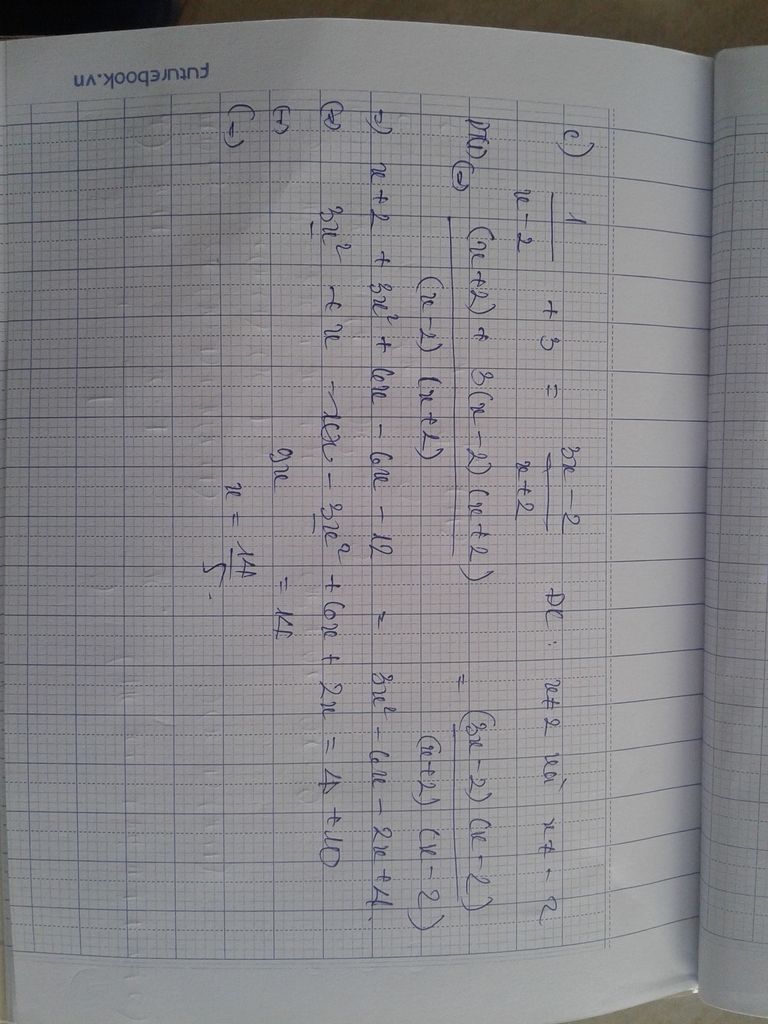 futurebook.vn
c) 1/(x-2) + 3 = (3x-2)/(x+2) ĐK: x≠2 và x≠-2
PT(1) ⇔ ((x+2) + 3(x-2)(x+2))/((x-2)(x+2)) = ((3x-2)(x-2))/((x+2)(x-2))
=) x+2 + 3x² + 6x - 6x - 12 = 3x² - 6x - 2x + 4.
3x² + x - 3x² + 6x + 2x = 4 + 10
(=) 9x = 14
(=) x = 14/5.